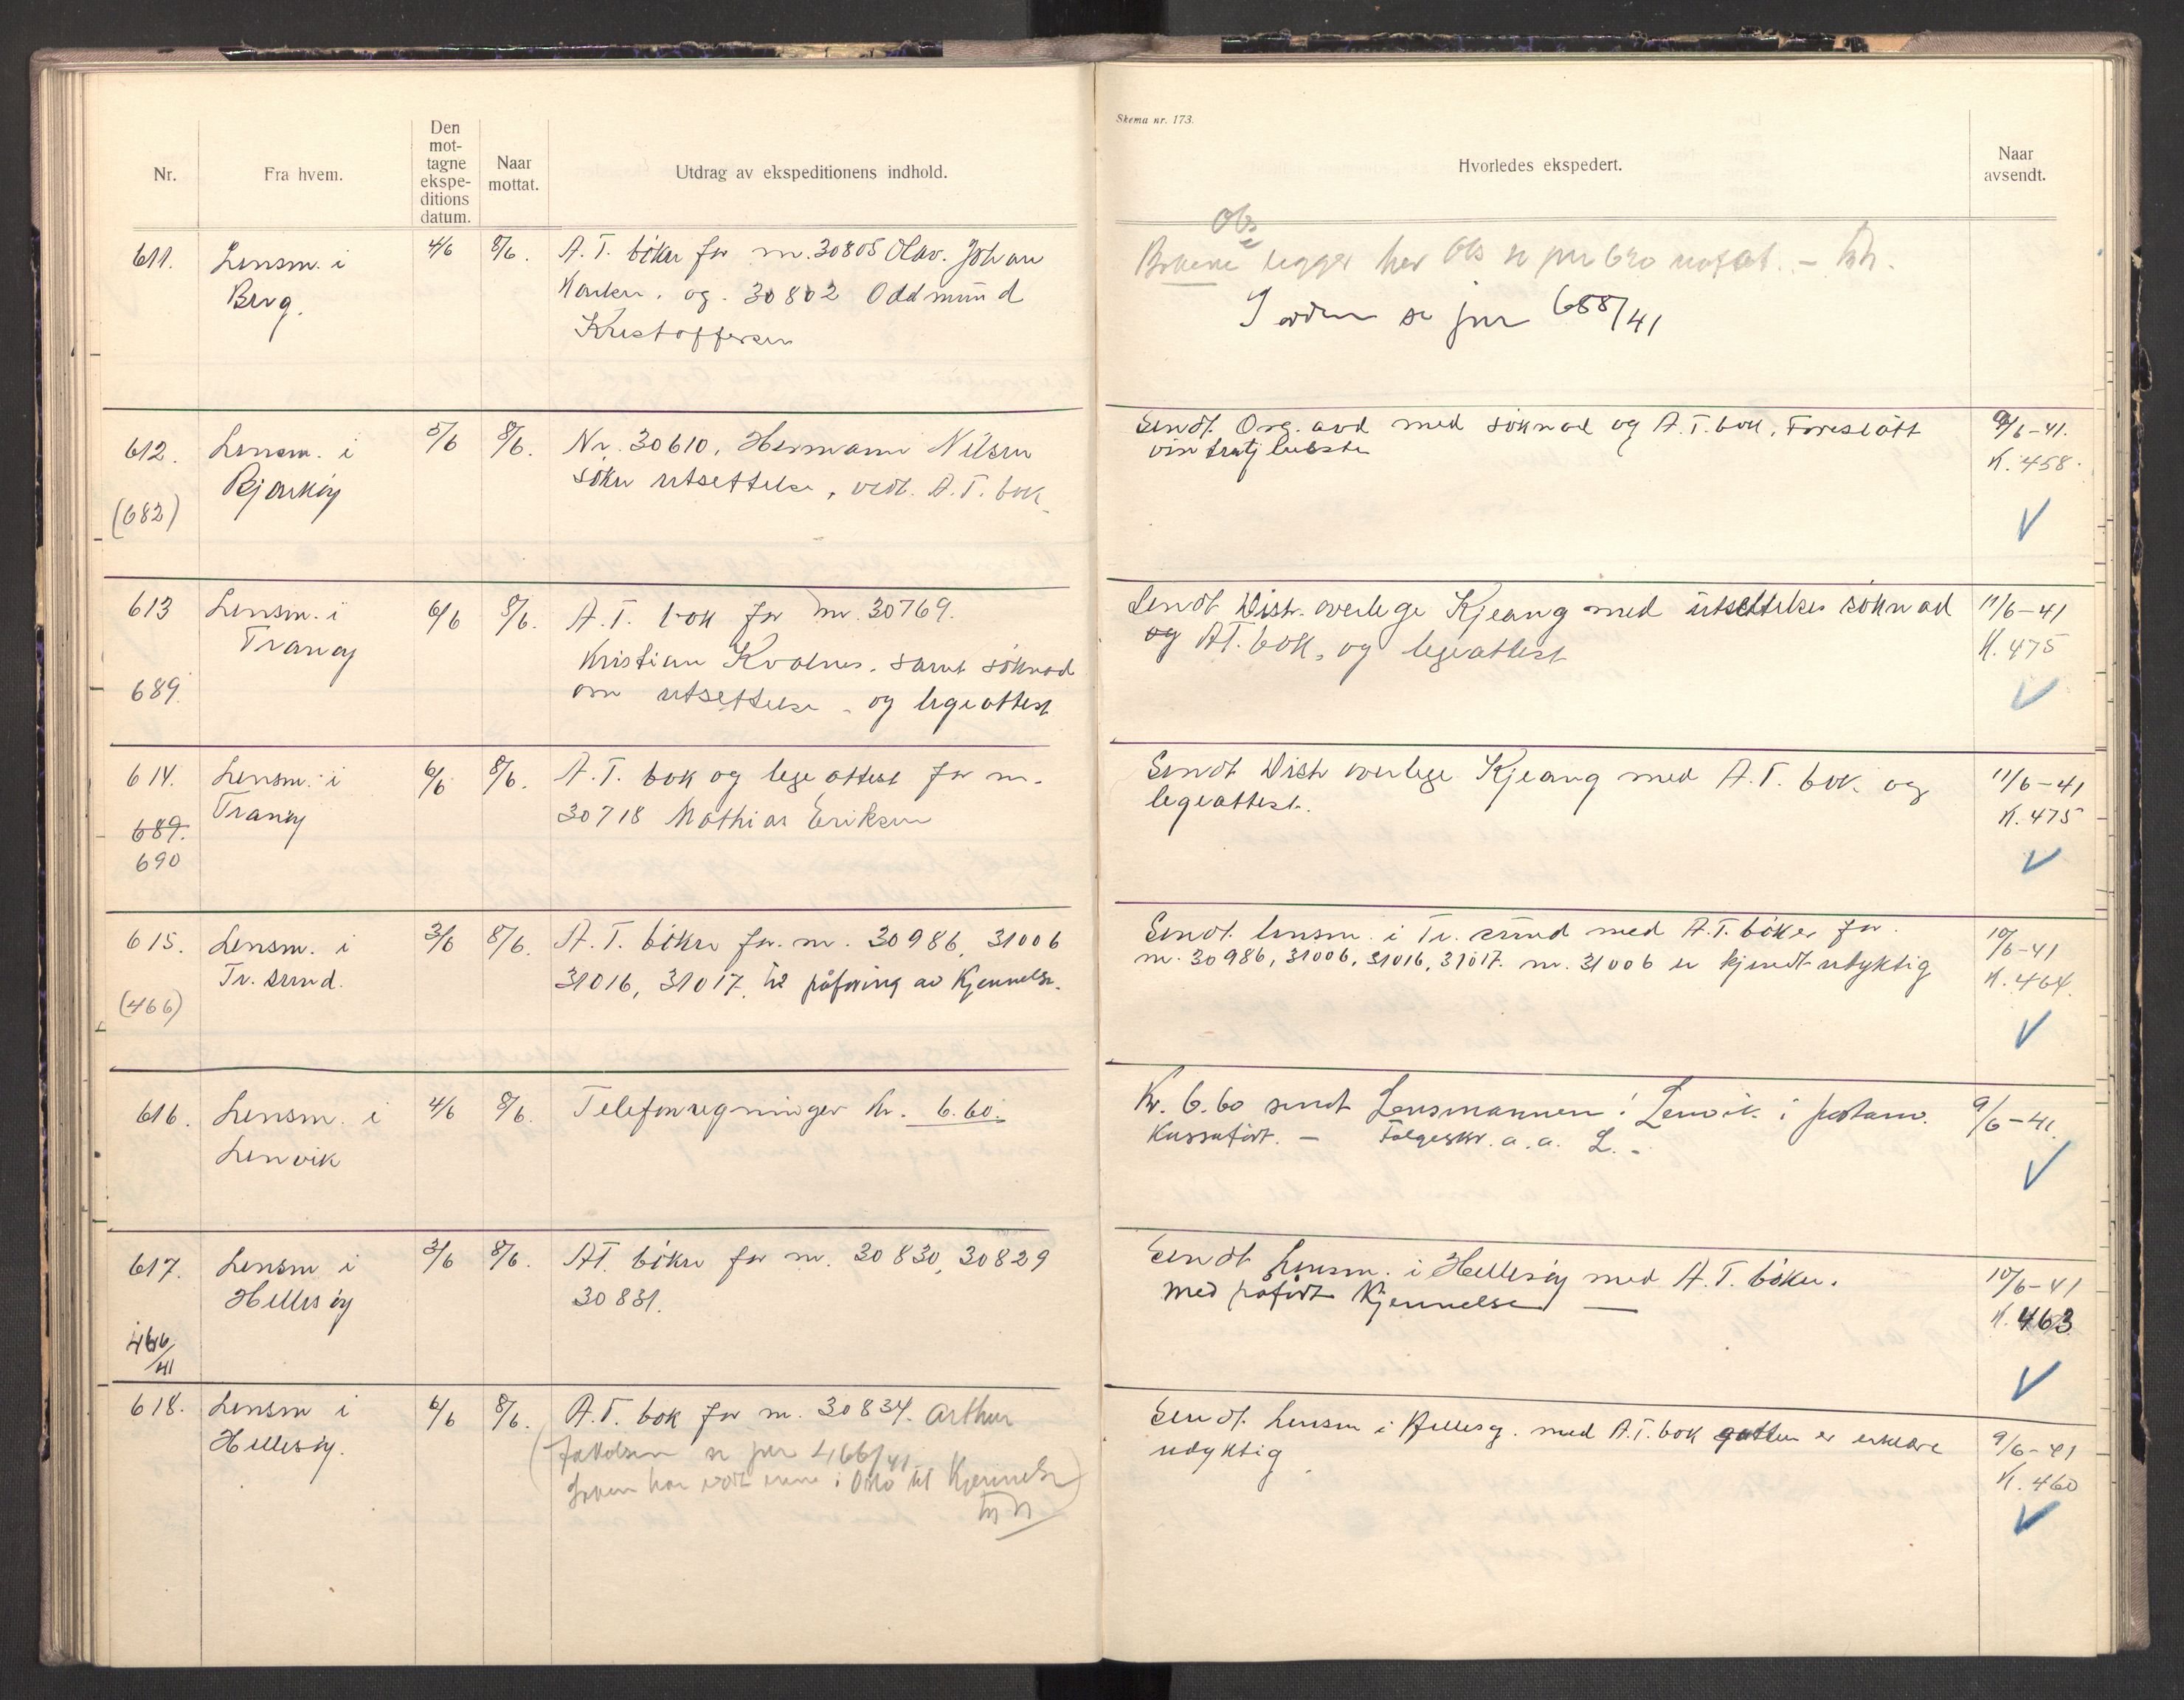 Nr.
Fra hvem.
Den
mot-
tagne
ekspe-
ditions
datum.
Naar
mottat.
Utdrag av ekspeditionens indhold.
611. Lensm. i 4/6 8/6. A. T. bøker for nr. 30805 Olav. Johan
Berg. og. 30802 Oddmund
Kristoffersen
612. Lensm. i 5/6 8/6. Nr. 30610, Hermann Nilsen
Bjarköy söker utsettelse, vedl. A. T. bok.
(682)
613 Lensm. i 6/6 8/6. A. T. bok for nr. 30769.
Tranöy Kristian Kvalnes. samt söknad
689. om utsettelse - og legeattest
614. Lensm. i 6/6 8/6. A. T. bok og legeattest for nr.
Tranöy 30718 Mathias Eriksen
689.
690
615. Lensm. i 3/6 8/6. A. T. böker for. nr. 30986, 31006
Tr. sund. 31016, 31017. til påföring av Kjennelse.
(466)
616. Lensm. i 4/6 8/6. Telefonregninger kr. 6.60.
Lenvik
617. Lensm i 3/6 8/6. AT. böker for nr. 30830, 30829
Hillesöy 30831.
466/41
618. Lensm i 6/6 8/6. A.T. bok for nr. 30834. Arthur
Hillesöy. (Jakobsen se jnr 466/41
har vært inne i Oslo til Kjennelse)
Skema nr. 173.
Hvorledes ekspedert.
Naar
avsendt.
Obs
Bökene ligger her Obs se jnr 690 notat. -
I orden se jnr 688/41
Sendt Org. avd med söknad og A. T. bok. Foreslått 9/6-41.
K. 458.
Sendt Distr. overlege Kjeang med utsettelses söknad 11/6-41
og AT. bok, og legeattest K. 475
Sendt Distr overlege Kjeang med A. T. bok og 11/6-41
legeattest. K. 475
Sendt lensm. i Tr. sund med A.T. böker for. 10/6-41
nr. 30986, 31006, 31016, 31017. nr. 31006 er kjendt udyktig K. 464.
Kr. 6.60 sendt Lensmannen i Lenvik i postanv. 9/6-41.
Kassafört. - Fölgeskr. a. a. L. -
Sendt lensm. i Hillesöy med A. T. böker. 10/6-41
med påfört Kjennelse - K. 463
Sendt lensm i Hillesöy. med A.T. bok gutten er erklært 9/6-41
udyktig K. 460